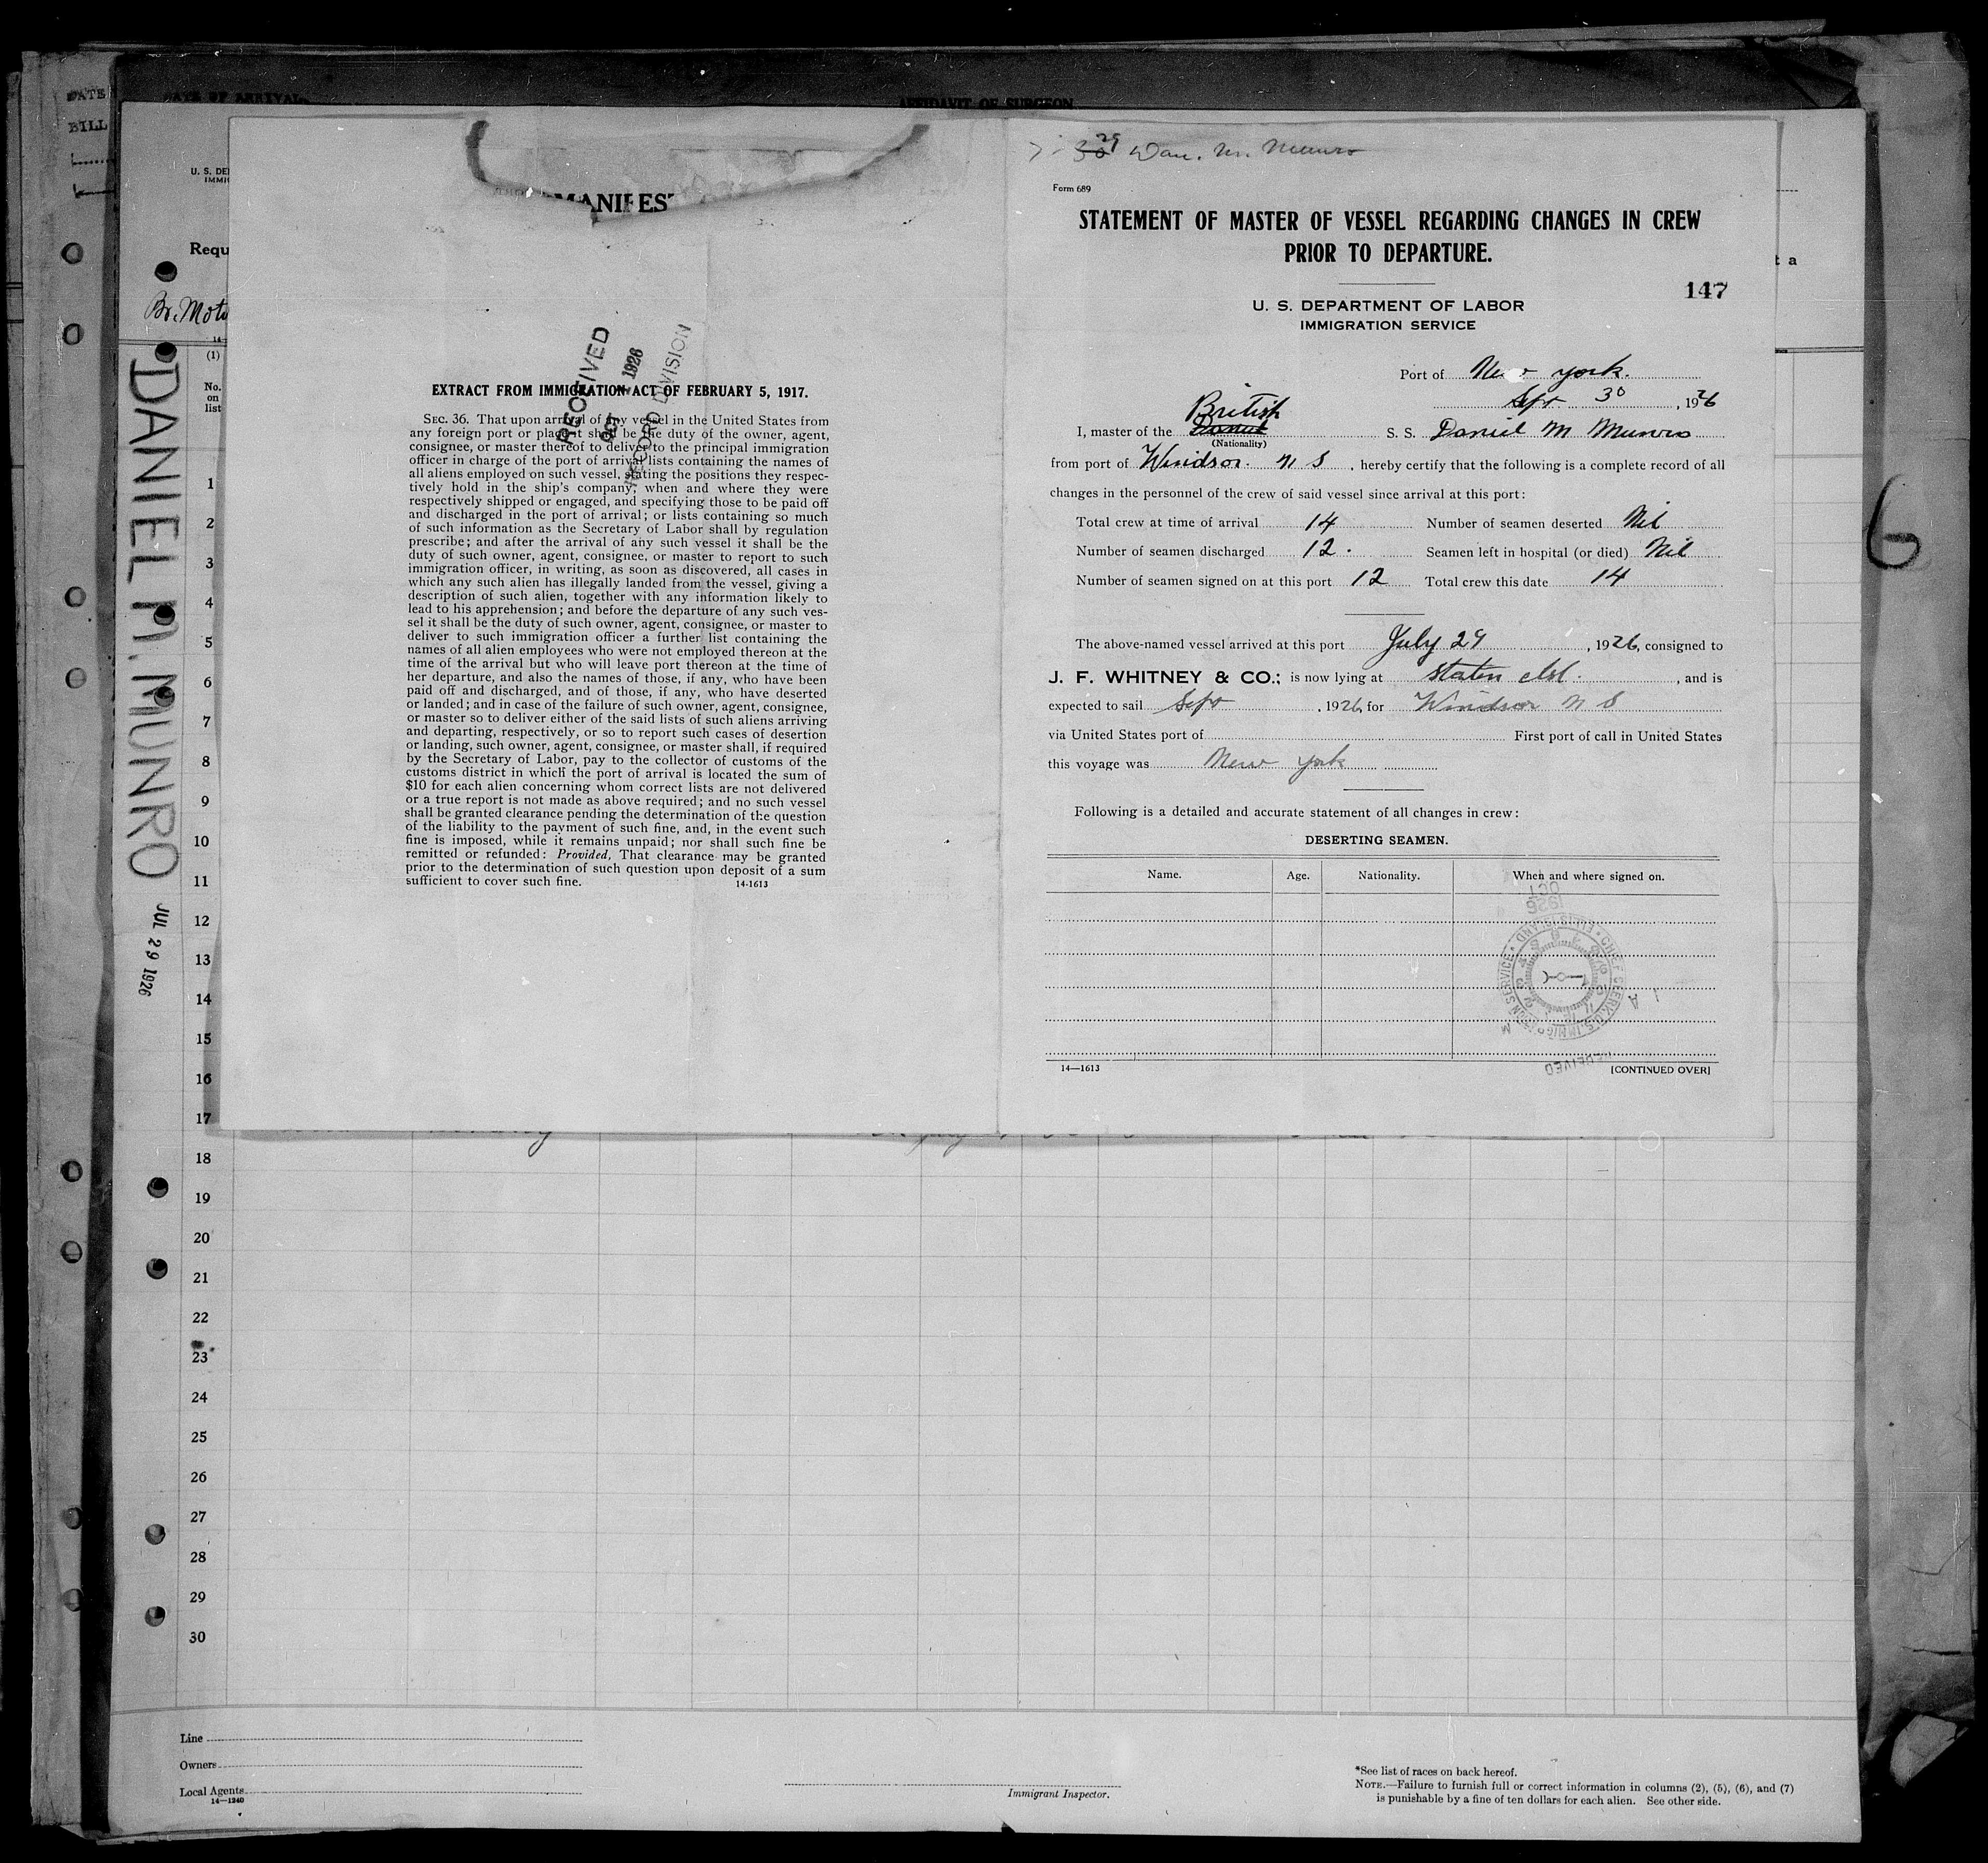 DATE
BILL
DATE OF ARRIVAL
AFFIDAVIT OF SURGEON
U. S. DE
IMMIG
Requ
Br. Moto
14-
(1)
No.
on
list
DANIEL M. MUNRO
JUL 29 1926
MANIFEST
RECEIVED
OCT 1926
RECORD DIVISION
EXTRACT FROM IMMIGRATION ACT OF FEBRUARY 5, 1917.
SEC. 36. That upon arrival of any vessel in the United States from
any foreign port or place it shall be the duty of the owner, agent,
consignee, or master thereof to deliver to the principal immigration
officer in charge of the port of arrival lists containing the names of
all aliens employed on such vessel, stating the positions they respec-
tively hold in the ship's company, when and where they were
respectively shipped or engaged, and specifying those to be paid off
and discharged in the port of arrival; or lists containing so much
of such information as the Secretary of Labor shall by regulation
prescribe; and after the arrival of any such vessel it shall be the
duty of such owner, agent, consignee, or master to report to such
immigration officer, in writing, as soon as discovered, all cases in
which any such alien has illegally landed from the vessel, giving a
description of such alien, together with any information likely to
lead to his apprehension; and before the departure of any such ves-
sel it shall be the duty of such owner, agent, consignee, or master to
deliver to such immigration officer a further list containing the
names of all alien employees who were not employed thereon at the
time of the arrival but who will leave port thereon at the time of
her departure, and also the names of those, if any, who have been
paid off and discharged, and of those, if any, who have deserted
or landed; and in case of the failure of such owner, agent, consignee,
or master so to deliver either of the said lists of such aliens arriving
and departing, respectively, or so to report such cases of desertion
or landing, such owner, agent, consignee, or master shall, if required
by the Secretary of Labor, pay to the collector of customs of the
customs district in which the port of arrival is located the sum of
$10 for each alien concerning whom correct lists are not delivered
or a true report is not made as above required; and no such vessel
shall be granted clearance pending the determination of the question
of the liability to the payment of such fine, and, in the event such
fine is imposed, while it remains unpaid; nor shall such fine be
remitted or refunded: Provided, That clearance may be granted
prior to the determination of such question upon deposit of a sum
sufficient to cover such fine. 14-1613
7-30 29 Dan. M. Munro
Form 689
STATEMENT OF MASTER OF VESSEL REGARDING CHANGES IN CREW
PRIOR TO DEPARTURE.
147
U. S. DEPARTMENT OF LABOR
IMMIGRATION SERVICE
Port of New York.
Sept 30, 1926
British
I, master of the S. S. Daniel M Munro
(Nationality)
from port of Windsor. N S, hereby certify that the following is a complete record of all
changes in the personnel of the crew of said vessel since arrival at this port:
Total crew at time of arrival 14 Number of seamen deserted Nil
Number of seamen discharged 12. Seamen left in hospital (or died) Nil
Number of seamen signed on at this port 12 Total crew this date 14
The above-named vessel arrived at this port July 29, 1926, consigned to
J. F. WHITNEY & CO.; is now lying at Staten Isl., and is
expected to sail Sept, 1926, for Windsor N S
via United States port of First port of call in United States
this voyage was New York
Following is a detailed and accurate statement of all changes in crew:
DESERTING SEAMEN.
Name. Age. Nationality. When and where signed on.
OCT
1926
CHIEF SERV. U.S. IMMIGRATION SERVICE ELLIS ISLAND
RECEIVED
14—1613 [CONTINUED OVER]
t a
6
1
2
3
4
5
6
7
8
9
10
11
12
13
14
15
16
17
18
19
20
21
22
23
24
25
26
27
28
29
30
Line
Owners
Local Agents
14—1240
Immigrant Inspector.
*See list of races on back hereof.
NOTE.—Failure to furnish full or correct information in columns (2), (5), (6), and (7)
is punishable by a fine of ten dollars for each alien. See other side.